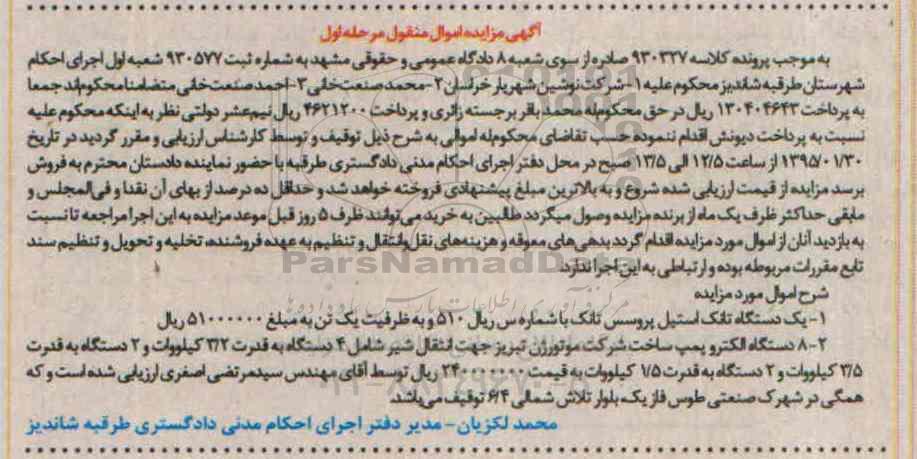 آگهی مزایده اموال منقول مرحله اول
به موجب پرونده کلاسه ۹۳۰۳۲۷ صادره از سوی شعبه ۸ دادگاه عمومی و حقوقی مشهد به شماره ثبت ۹۳۰۵۷۷ شعبه اول اجرای احکام
شهرستان طرقبه شاندیز محکوم علیه ۱- شرکت نوشین شهریار خراسان ۲- محمد صنعت‌خانی ۳- احمد صنعت‌خانی متضامنا محکوم‌اند جمعا
به پرداخت ۱۳۰۴۰۴۶۴۳ ریال در حق محکوم‌له محمد باقر برجسته زائری و پرداخت ۴۶۲۱۲۰۰ ریال نیم‌عشر دولتی نظر به اینکه محکوم علیه
نسبت به پرداخت دیونش اقدام ننموده حسب تقاضای محکوم‌له اموالی به شرح ذیل توقیف و توسط کارشناس ارزیابی و مقرر گردید در تاریخ
۱۳۹۵/۰۱/۳۰ از ساعت ۱۲/۵ الی ۱۳/۵ صبح در محل دفتر اجرای احکام مدنی دادگستری طرقبه با حضور نماینده دادستان محترم به فروش
برسد مزایده از قیمت ارزیابی شده شروع و به بالاترین مبلغ پیشنهادی فروخته خواهد شد و حداقل ده درصد از بهای آن نقدا و فی‌المجلس و
مابقی حداکثر ظرف یک ماه از برنده مزایده وصول میگردد طالبین به خرید می‌توانند ظرف ۵ روز قبل موعد مزایده به این اجرا مراجعه تا نسبت
به بازدید آنان از اموال مورد مزایده اقدام گردد بدهی‌های معوقه و هزینه‌های نقل‌وانتقال و تنظیم به عهده فروشنده، تخلیه و تحویل و تنظیم سند
تابع مقررات مربوطه بوده و ارتباطی به این اجرا ندارد.
ParsNamadData
شرح اموال مورد مزایده
۱- یک دستگاه تانک استیل پروسس تانک با شماره س ریال ۵۱۰ و به ظرفیت یک تن به مبلغ ۵۱۰۰۰۰۰۰ ریال
۲- ۸ دستگاه الکترو پمپ ساخت شرکت موتورژن تبریز جهت انتقال شیر شامل ۴ دستگاه به قدرت ۲/۲ کیلووات و ۲ دستگاه به قدرت
۳/۵ کیلووات و ۲ دستگاه به قدرت ۱/۵ کیلووات به قیمت ۲۴۰۰۰۰۰۰ ریال توسط آقای مهندس سیدمرتضی اصغری ارزیابی شده است و که
همگی در شهرک صنعتی طوس فاز یک، بلوار تلاش شمالی ۶۱۴ توقیف می‌باشد.
محمد لکزیان - مدیر دفتر اجرای احکام مدنی دادگستری طرقبه شاندیز